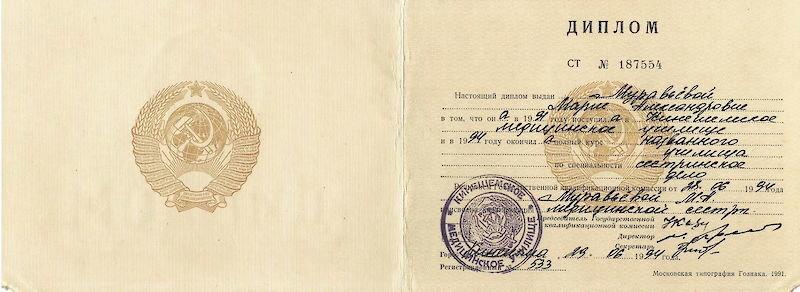 ДИПЛОМ
СТ № 187554
Настоящий диплом выдан Муравьёвой
Марие Александровне
в том, что он а в 1991 году поступил а в Кинешемское
медицинское училище
и в 1994 году окончил а полный курс названного
училища
по специальности сестринское
дело
Решением Государственной квалификационной комиссии от 28.06 1994
Муравьёвой М.А.
медицинской сестры
Председатель Государственной
квалификационной комиссии
Директор
Секретарь
Город Кинешма 29. 06 1994 г.
Регистрационный № 533
КИНЕШЕМСКОЕ МЕДИЦИНСКОЕ УЧИЛИЩЕ
Московская типография Гознака. 1991.